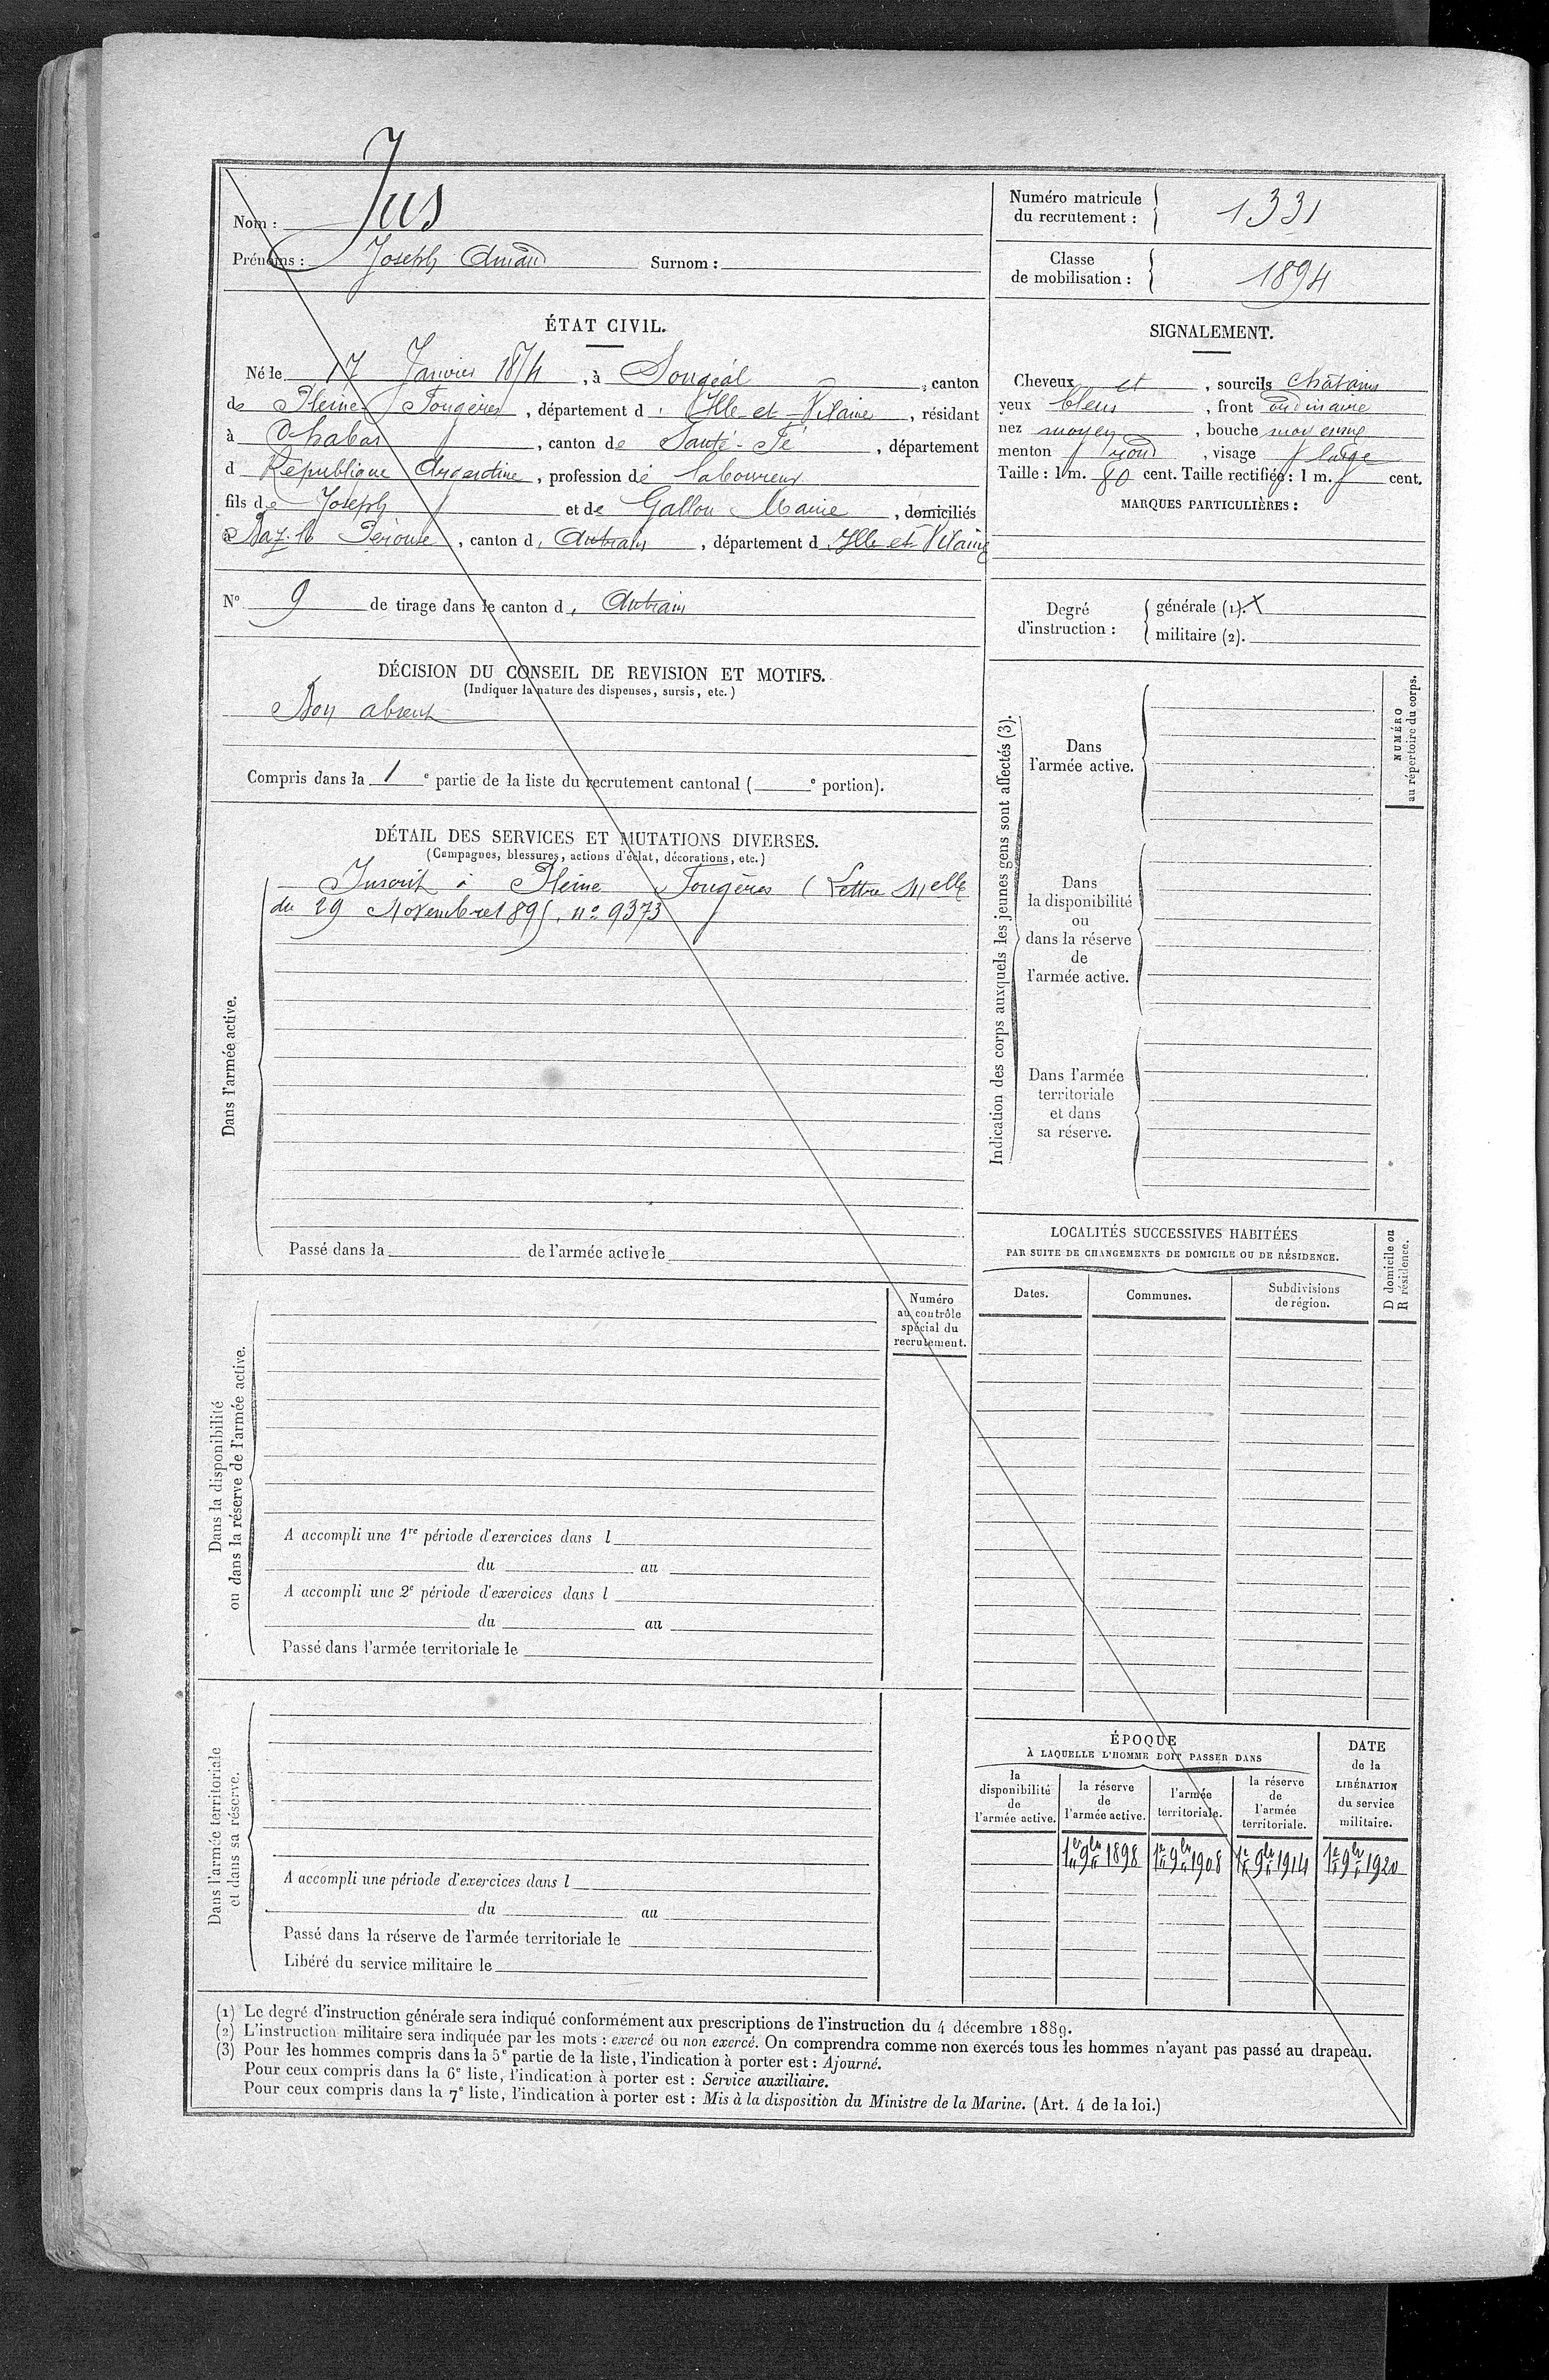 Nom : Jus
Prénoms : Joseph Amand Surnom :
Numéro matricule
du recrutement : 1331
Classe
de mobilisation : 1894
ÉTAT CIVIL.
Né le 17 Janvier 1874, à Sougéal, canton
de Pleine Fougères, département d'Ille et Vilaine, résidant
à Chabas, canton de Santé-Fé, département
d République Argentine, profession de laboureur
fils de Joseph et de Gallon Marie, domiciliés
à Baz. la Pérouse, canton d'Antrain, département d'Ille et Vilaine
N° 9 de tirage dans le canton d'Antrain
SIGNALEMENT.
Cheveux et, sourcils châtains
yeux bleus, front ordinaire
nez moyen, bouche moyenne
menton rond, visage large
Taille : 1 m. 80 cent. Taille rectifiée : 1 m. cent.
MARQUES PARTICULIÈRES :
Degré
d'instruction :
générale (1). X
militaire (2).
DÉCISION DU CONSEIL DE REVISION ET MOTIFS.
(Indiquer la nature des dispenses, sursis, etc.)
Bon absent
Compris dans la 1e partie de la liste du recrutement cantonal ( e portion).
DÉTAIL DES SERVICES ET MUTATIONS DIVERSES.
(Campagnes, blessures, actions d'éclat, décorations, etc.)
Dans l'armée active.
Inscrit à Pleine Fougères (Lettre Melle
du 29 Novembre 1895, n° 9373
Passé dans la de l'armée active le
Indication des corps auxquels les jeunes gens sont affectés (3).
Dans
l'armée active.
Dans
la disponibilité
ou
dans la réserve
de
l'armée active.
Dans l'armée
territoriale
et dans
sa réserve.
NUMÉRO
au répertoire du corps.
Dans la disponibilité
ou dans la réserve de l'armée active.
Numéro
au contrôle
spécial du
recrutement.
A accompli une 1re période d'exercices dans l
du au
A accompli une 2e période d'exercices dans l
du au
Passé dans l'armée territoriale le
LOCALITÉS SUCCESSIVES HABITÉES
PAR SUITE DE CHANGEMENTS DE DOMICILE OU DE RÉSIDENCE.
Dates.
Communes.
Subdivisions
de région.
D domicile ou
R résidence.
Dans l'armée territoriale
et dans sa réserve.
A accompli une période d'exercices dans l
du au
Passé dans la réserve de l'armée territoriale le
Libéré du service militaire le
ÉPOQUE
À LAQUELLE L'HOMME DOIT PASSER DANS
la
disponibilité
de
l'armée active.
la réserve
de
l'armée active.
l'armée
territoriale.
la réserve
de
l'armée
territoriale.
DATE
de la
LIBÉRATION
du service
militaire.
1er 9bre 1898 1er 9bre 1908 1er 9bre 1914 1er 9bre 1920
(1) Le degré d'instruction générale sera indiqué conformément aux prescriptions de l'instruction du 4 décembre 1889.
(2) L'instruction militaire sera indiquée par les mots : exercé ou non exercé. On comprendra comme non exercés tous les hommes n'ayant pas passé au drapeau.
(3) Pour les hommes compris dans la 5e partie de la liste, l'indication à porter est : Ajourné.
Pour ceux compris dans la 6e liste, l'indication à porter est : Service auxiliaire.
Pour ceux compris dans la 7e liste, l'indication à porter est : Mis à la disposition du Ministre de la Marine. (Art. 4 de la loi.)